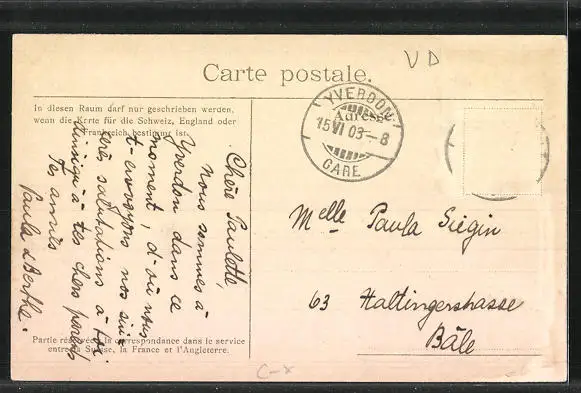 VD
Carte postale.
In diesen Raum darf nur geschrieben werden,
wenn die Karte für die Schweiz, England oder
Frankreich bestimmt ist.
YVERDON
15 VI 03 - 8
GARE
Adresse
Chère Paulette,
Nous sommes à
Yverdon dans ce
moment, d'où nous
t-envoyons nos sin-
cères salutations à toi
ainsi qu'à tes chers parents
Tes amies
Paula & Berthe.
Melle Paula Siegin
63 Haltingerstrasse
Bâle
Partie réservée à la correspondance dans le service
entre la Suisse, la France et l'Angleterre.